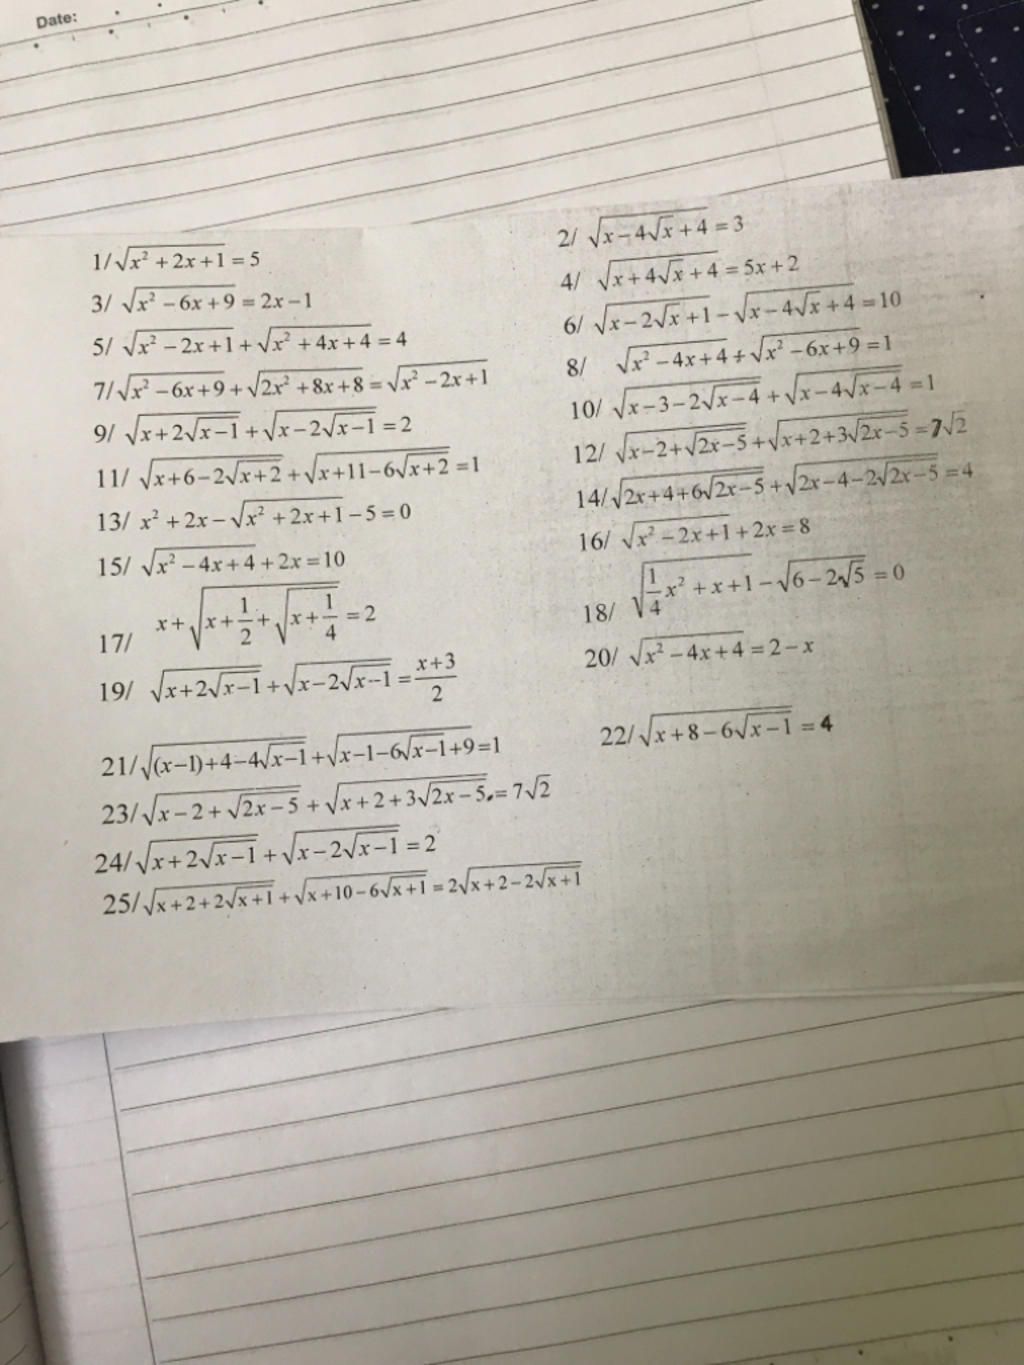 Date:
1/ √(x² + 2x + 1) = 5
2/ √(x − 4√x + 4) = 3
3/ √(x² − 6x + 9) = 2x − 1
4/ √(x + 4√x + 4) = 5x + 2
5/ √(x² − 2x + 1) + √(x² + 4x + 4) = 4
6/ √(x − 2√x + 1) − √(x − 4√x + 4) = 10
7/ √(x² − 6x + 9) + √(2x² + 8x + 8) = √(x² − 2x + 1)
8/ √(x² − 4x + 4) + √(x² − 6x + 9) = 1
9/ √(x + 2√(x − 1)) + √(x − 2√(x − 1)) = 2
10/ √(x − 3 − 2√(x − 4)) + √(x − 4√(x − 4)) = 1
11/ √(x + 6 − 2√(x + 2)) + √(x + 11 − 6√(x + 2)) = 1
12/ √(x − 2 + √(2x − 5)) + √(x + 2 + 3√(2x − 5)) = 7√2
13/ x² + 2x − √(x² + 2x + 1) − 5 = 0
14/ √(2x + 4 + 6√(2x − 5)) + √(2x − 4 − 2√(2x − 5)) = 4
15/ √(x² − 4x + 4) + 2x = 10
16/ √(x² − 2x + 1) + 2x = 8
17/ x + √(x + 1/2 + √(x + 1/4)) = 2
18/ √(1/4 x² + x + 1) − √(6 − 2√5) = 0
19/ √(x + 2√(x − 1)) + √(x − 2√(x − 1)) = (x + 3)/2
20/ √(x² − 4x + 4) = 2 − x
21/ √((x − 1) + 4 − 4√(x − 1)) + √(x − 1 − 6√(x − 1) + 9) = 1
22/ √(x + 8 − 6√(x − 1)) = 4
23/ √(x − 2 + √(2x − 5)) + √(x + 2 + 3√(2x − 5)) = 7√2
24/ √(x + 2√(x − 1)) + √(x − 2√(x − 1)) = 2
25/ √(x + 2 + 2√(x + 1)) + √(x + 10 − 6√(x + 1)) = 2√(x + 2 − 2√(x + 1))